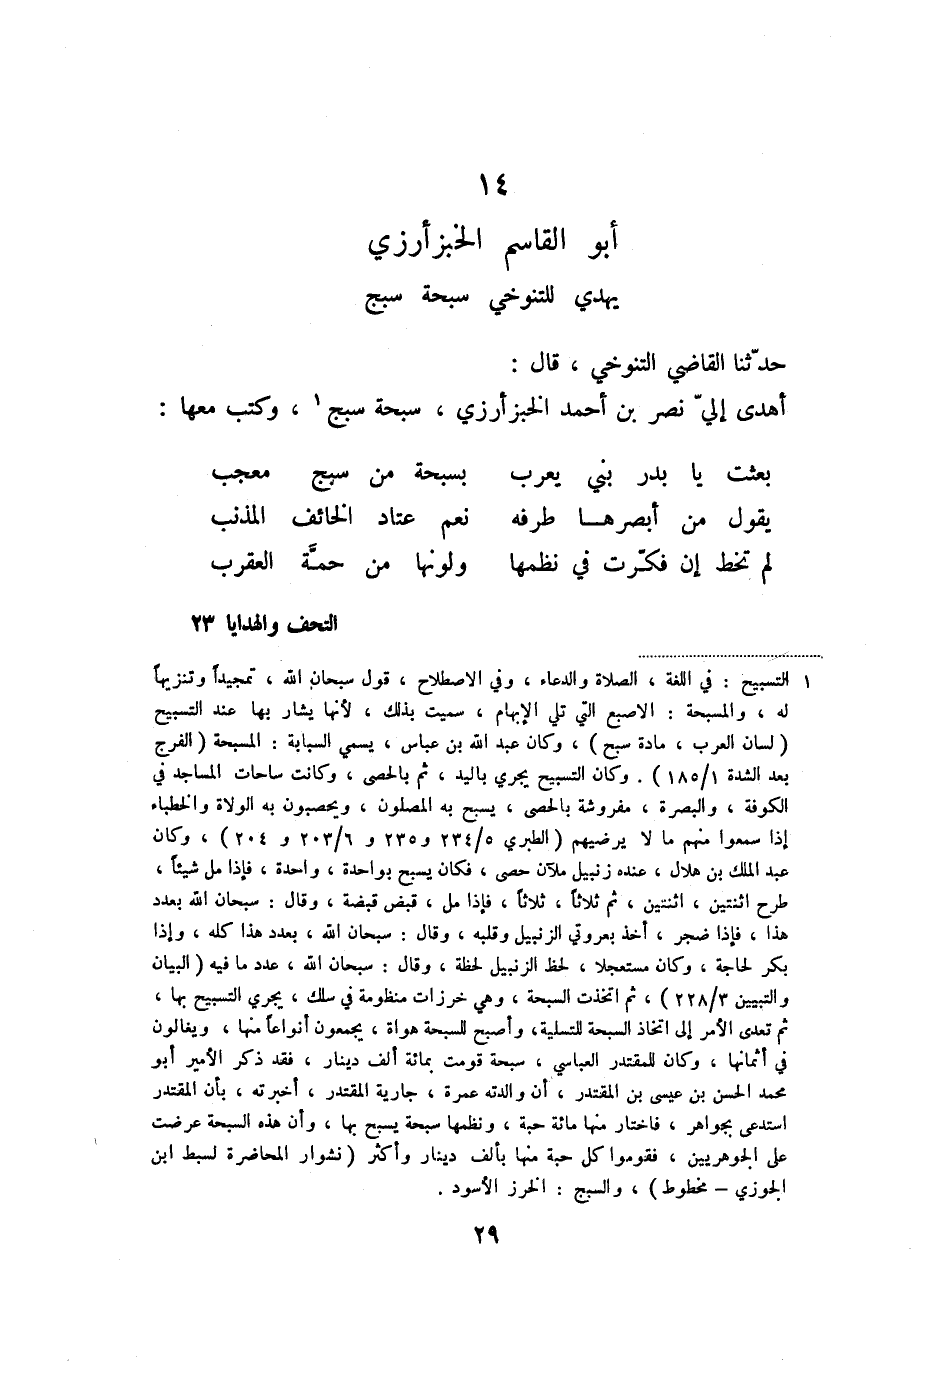 ١٤
أبو القاسم الخبزأرزي
يهدي للتنوخي سبحة سبج
حدّثنا القاضي التنوخي ، قال :
أهدى إليّ نصر بن أحمد الخبزأرزي ، سبحة سبج ١ ، وكتب معها :
بعثت يا بدر بني يعرب بسبحة من سبج معجب
يقول من أبصرهـا طرفه نعم عتاد الخائف المذنب
لم تخط إن فكّرت في نظمها ولونها من حمّة العقرب
التحف والهدايا ٢٣
١ التسبيح : في اللغة ، الصلاة والدعاء ، وفي الاصطلاح ، قول سبحان الله ، تمجيداً وتنزيهاً
له ، والمسبحة : الاصبع التي تلي الإبهام ، سميت بذلك ، لأنها يشار بها عند التسبيح
( لسان العرب ، مادة سبح ) ، وكان عبد الله بن عباس ، يسمي السبابة : المسبحة ( الفرج
بعد الشدة ١٨٥/١ ) . وكان التسبيح يجري باليد ، ثم بالحصى ، وكانت ساحات المساجد في
الكوفة ، والبصرة ، مفروشة بالحصى ، يسبح به المصلون ، ويحصبون به الولاة والخطباء
إذا سمعوا منهم ما لا يرضيهم ( الطبري ٢٣٤/٥ و٢٣٥ و ٢٠٣/٦ و ٢٠٤ ) ، وكان
عبد الملك بن هلال ، عنده زنبيل ملآن حصى ، فكان يسبح بواحدة ، واحدة ، فإذا مل شيئاً ،
طرح اثنتين ، اثنتين ، ثم ثلاثاً ، ثلاثاً ، فإذا مل ، قبض قبضة ، وقال : سبحان الله بعدد
هذا ، فإذا ضجر ، أخذ بعروتي الزنبيل وقلبه ، وقال : سبحان الله ، بعدد هذا كله ، وإذا
بكر لحاجة ، وكان مستعجلا ، لحظ الزنبيل لحظة ، وقال : سبحان الله ، عدد ما فيه ( البيان
والتبيين ٢٢٨/٣ ) ، ثم اتخذت السبحة ، وهي خرزات منظومة في سلك ، يجري التسبيح بها ،
ثم تعدى الأمر إلى اتخاذ السبحة للتسلية، وأصبح للسبحة هواة ، يجمعون أنواعاً منها ، ويغالون
في أثمانها ، وكان للمقتدر العباسي ، سبحة قومت بمائة ألف دينار ، فقد ذكر الأمير أبو
محمد الحسن بن عيسى بن المقتدر ، أن والدته عمرة ، جارية المقتدر ، أخبرته ، بأن المقتدر
استدعى بجواهر ، فاختار منها مائة حبة ، ونظمها سبحة يسبح بها ، وأن هذه السبحة عرضت
على الجوهريين ، فقوموا كل حبة منها بألف دينار وأكثر ( نشوار المحاضرة لسبط ابن
الجوزي – مخطوط ) ، والسبج : الخرز الأسود .
٢٩